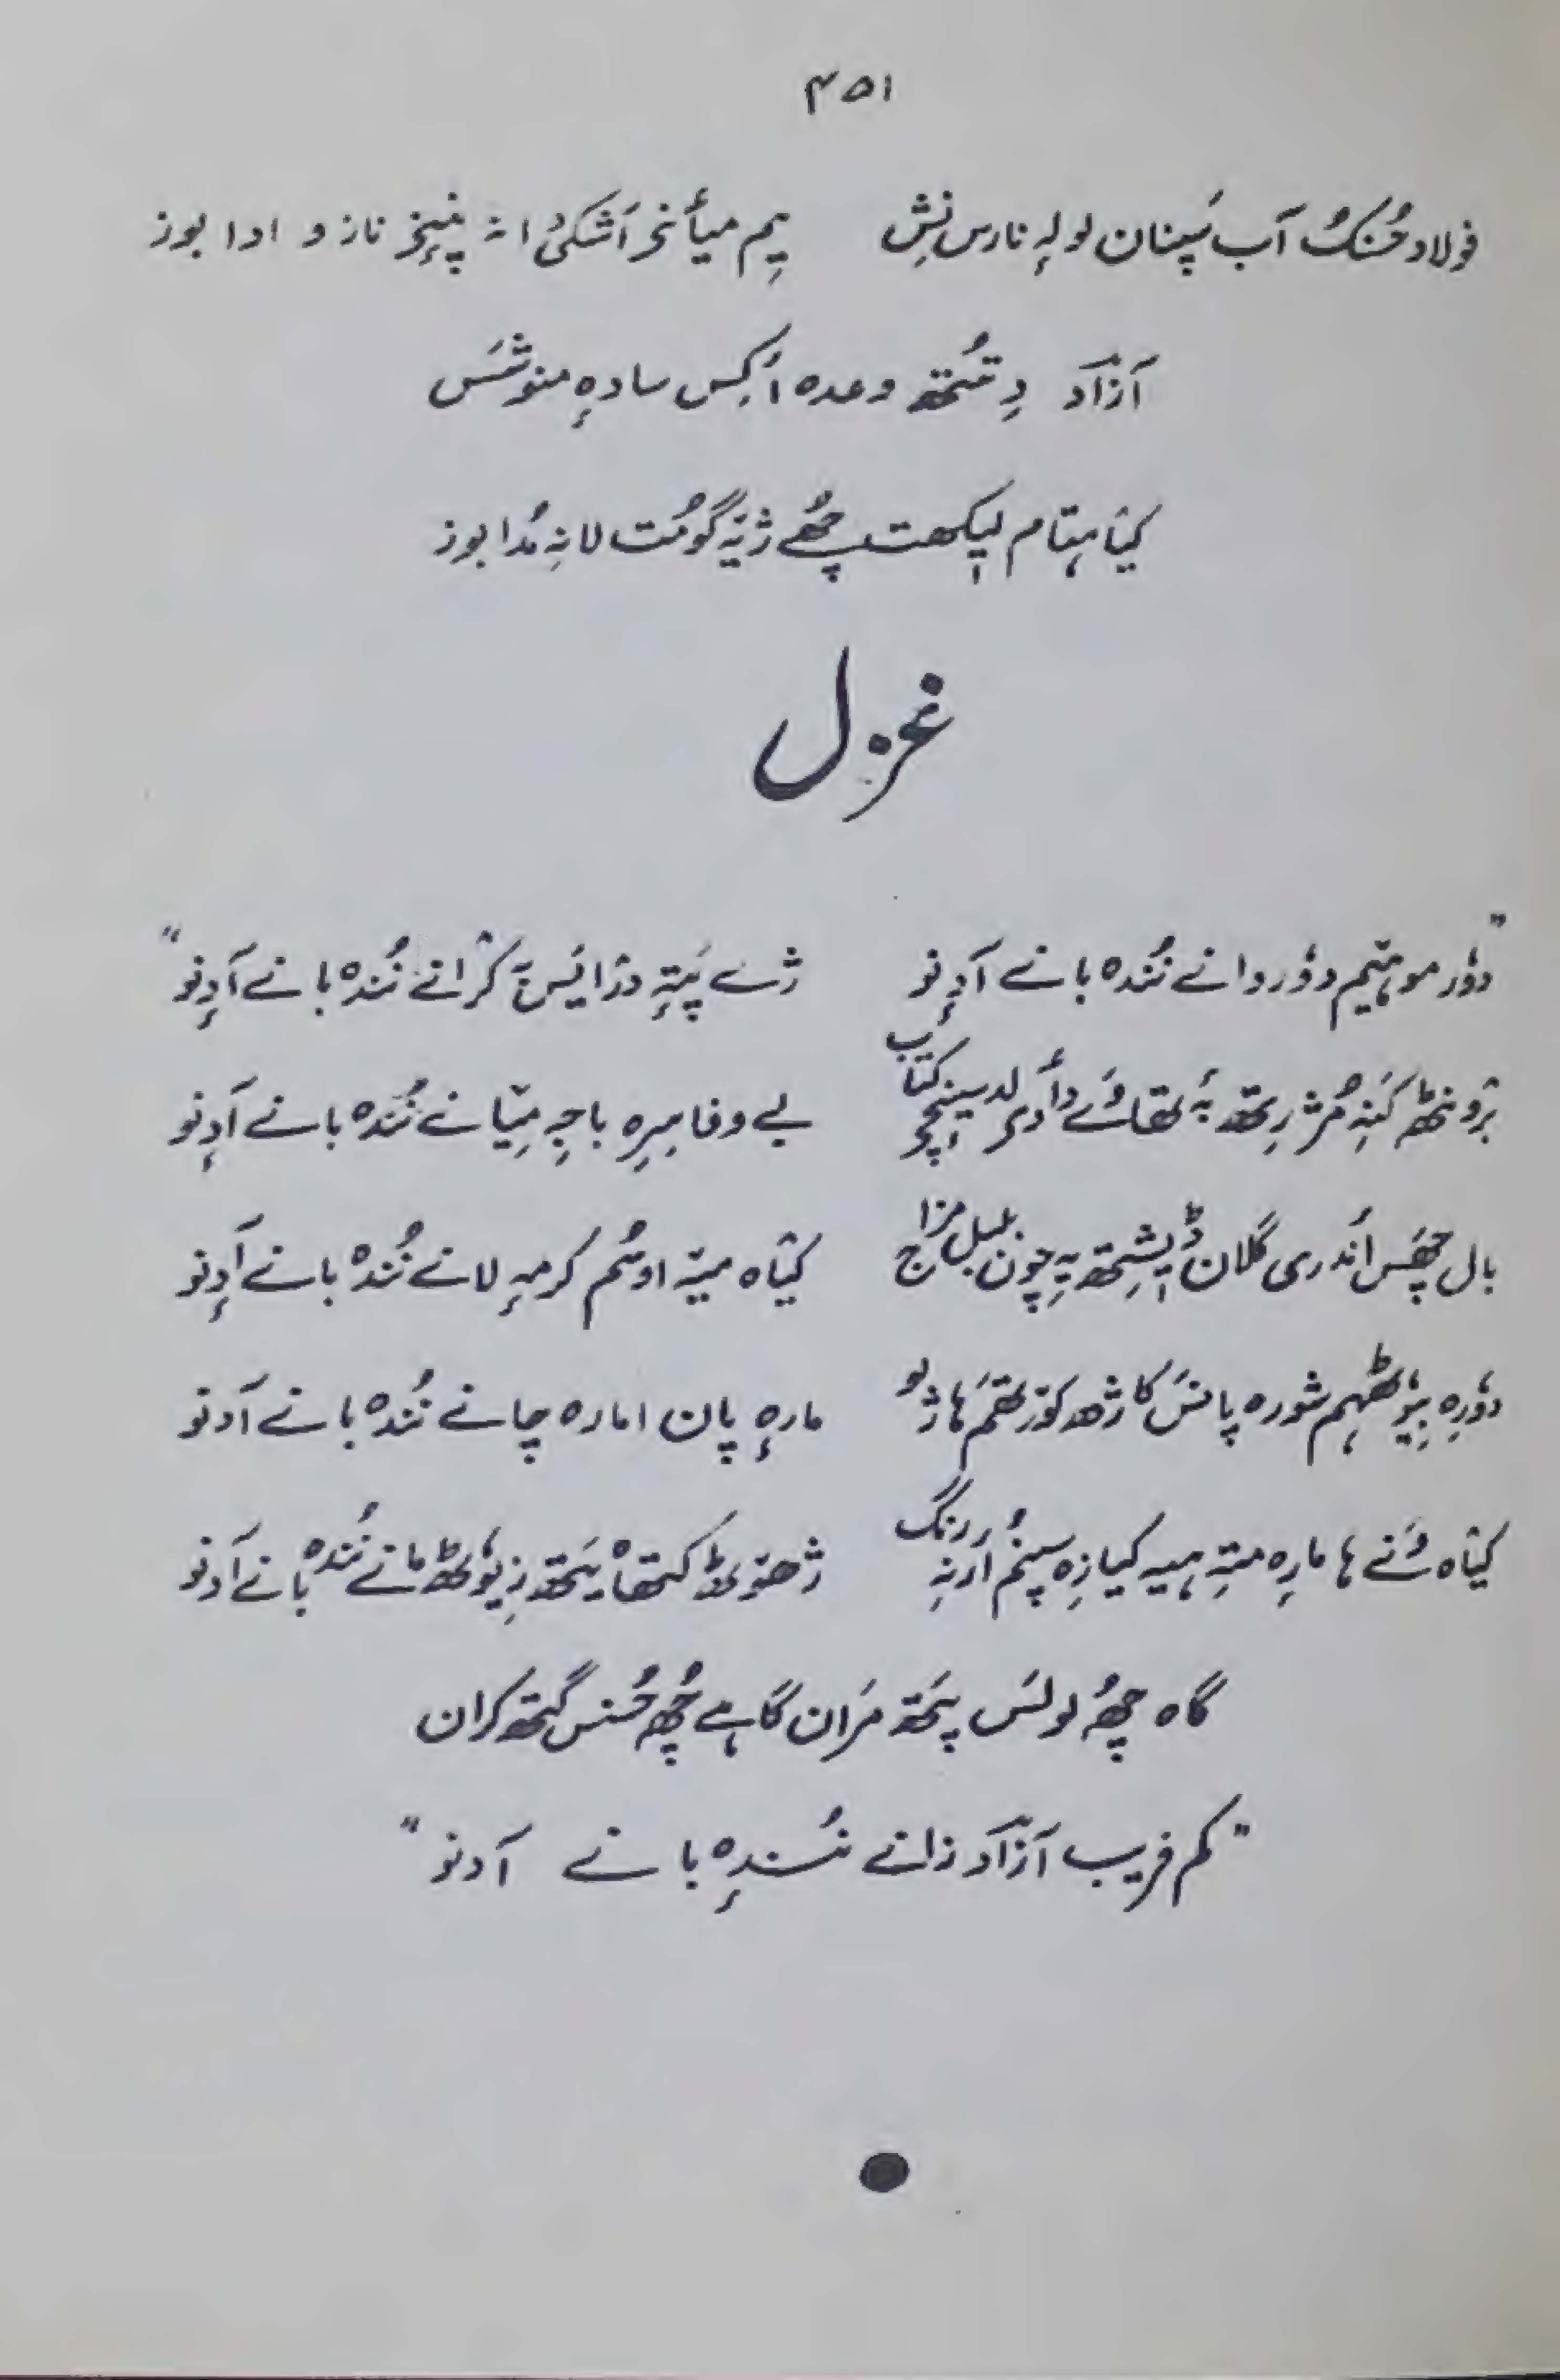 ۴۵۱
فولاد حُسنُک آب سَپنان لولہِ نارس نِش یِم میأنۍ اَشکئ انہ پنٕنۍ ناز و ادا بوز
آزاد دِتُتھ وعدہ أکِس سادہٕ منوشَس
کیٛاہتام لیٖکھتہٕ چھُے ژیٚہ گومُت لانہِ مُدا بوز
غزل
"دوٗر موہیٚم دوٗر دانے نُندہ بانے آدِنو ژے پَتہِ درٛایَس بہٕ کرٛانے نُندہ بانے آدِنو"
برٛونٹھ کَنہِ مُژرِتھ بہٕ تھاوَے دأدۍ لد سینچ کتاب بے وفا میرِہ باچہِ میٚانے نُندہ بانے آدِنو
بال چھَس أندری گلان ڈیٖشِتھ یہِ چون بلبل مزاج کیٛاہ میٚہ اوسُم کرمہٕ لانے نُندہ بانے آدِنو
دوٗرِہ بیوٗٹھہم شورہ پانَس کاژھ کوٗرتھم ہاژلو مارہٕ پان امارہ چانے نُندہ بانے آدنو
کیٛاہ وَنے ہا مارِہ متہِ ہیہ کیازِہ سپنُم ارنہِ رنگ ژھنوٗٹھ کتھاہ یَتھ زیوٗٹھ مانے نُندہ بانے آدنو
گاہ چھُہ لولَس پتھ مَران گاہے چھُہ حُسنس گتھ کران
"کم فریب آزاد زانے نُسندہٕ بانے آدنو"